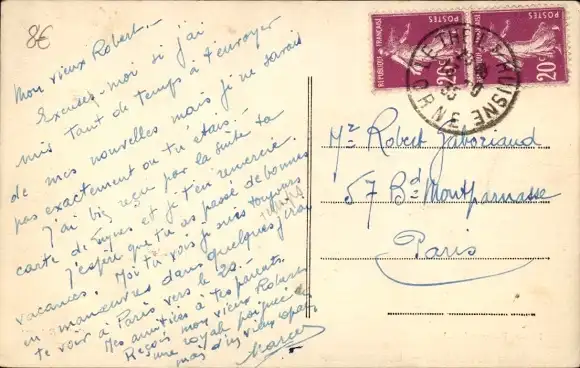 8€
Mon vieux Robert –
Excuses-moi si j'ai
mis tant de temps à t'envoyer
de mes nouvelles mais je ne savais
pas exactement où tu étais. –
J'ai bien reçu par la suite ta
carte de et je t'en remercie.
J'espère que tu as passé de bonnes
vacances. Moi tu vois je suis toujours
en manœuvres dans quelques jours
te voir à Paris vers le 20. –
Mes amitiés à tes parents.
Reçois mon vieux Robert
une royale poignée
main d'un vieux copain
Marcel
REPUBLIQUE FRANÇAISE
POSTES
20c
REPUBLIQUE FRANÇAISE
POSTES
20c
LE THEIL S HUISNE
ORNE
Mr Robert Gaboriaud
57 Bd Montparnasse
Paris